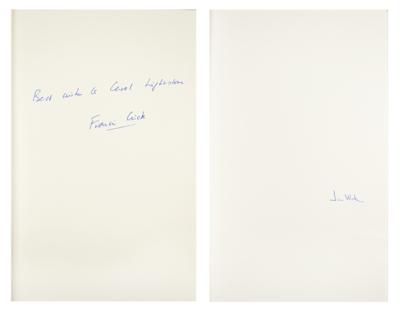 Best wishes to Carol Lightstone
Francis Crick
Jim Watson